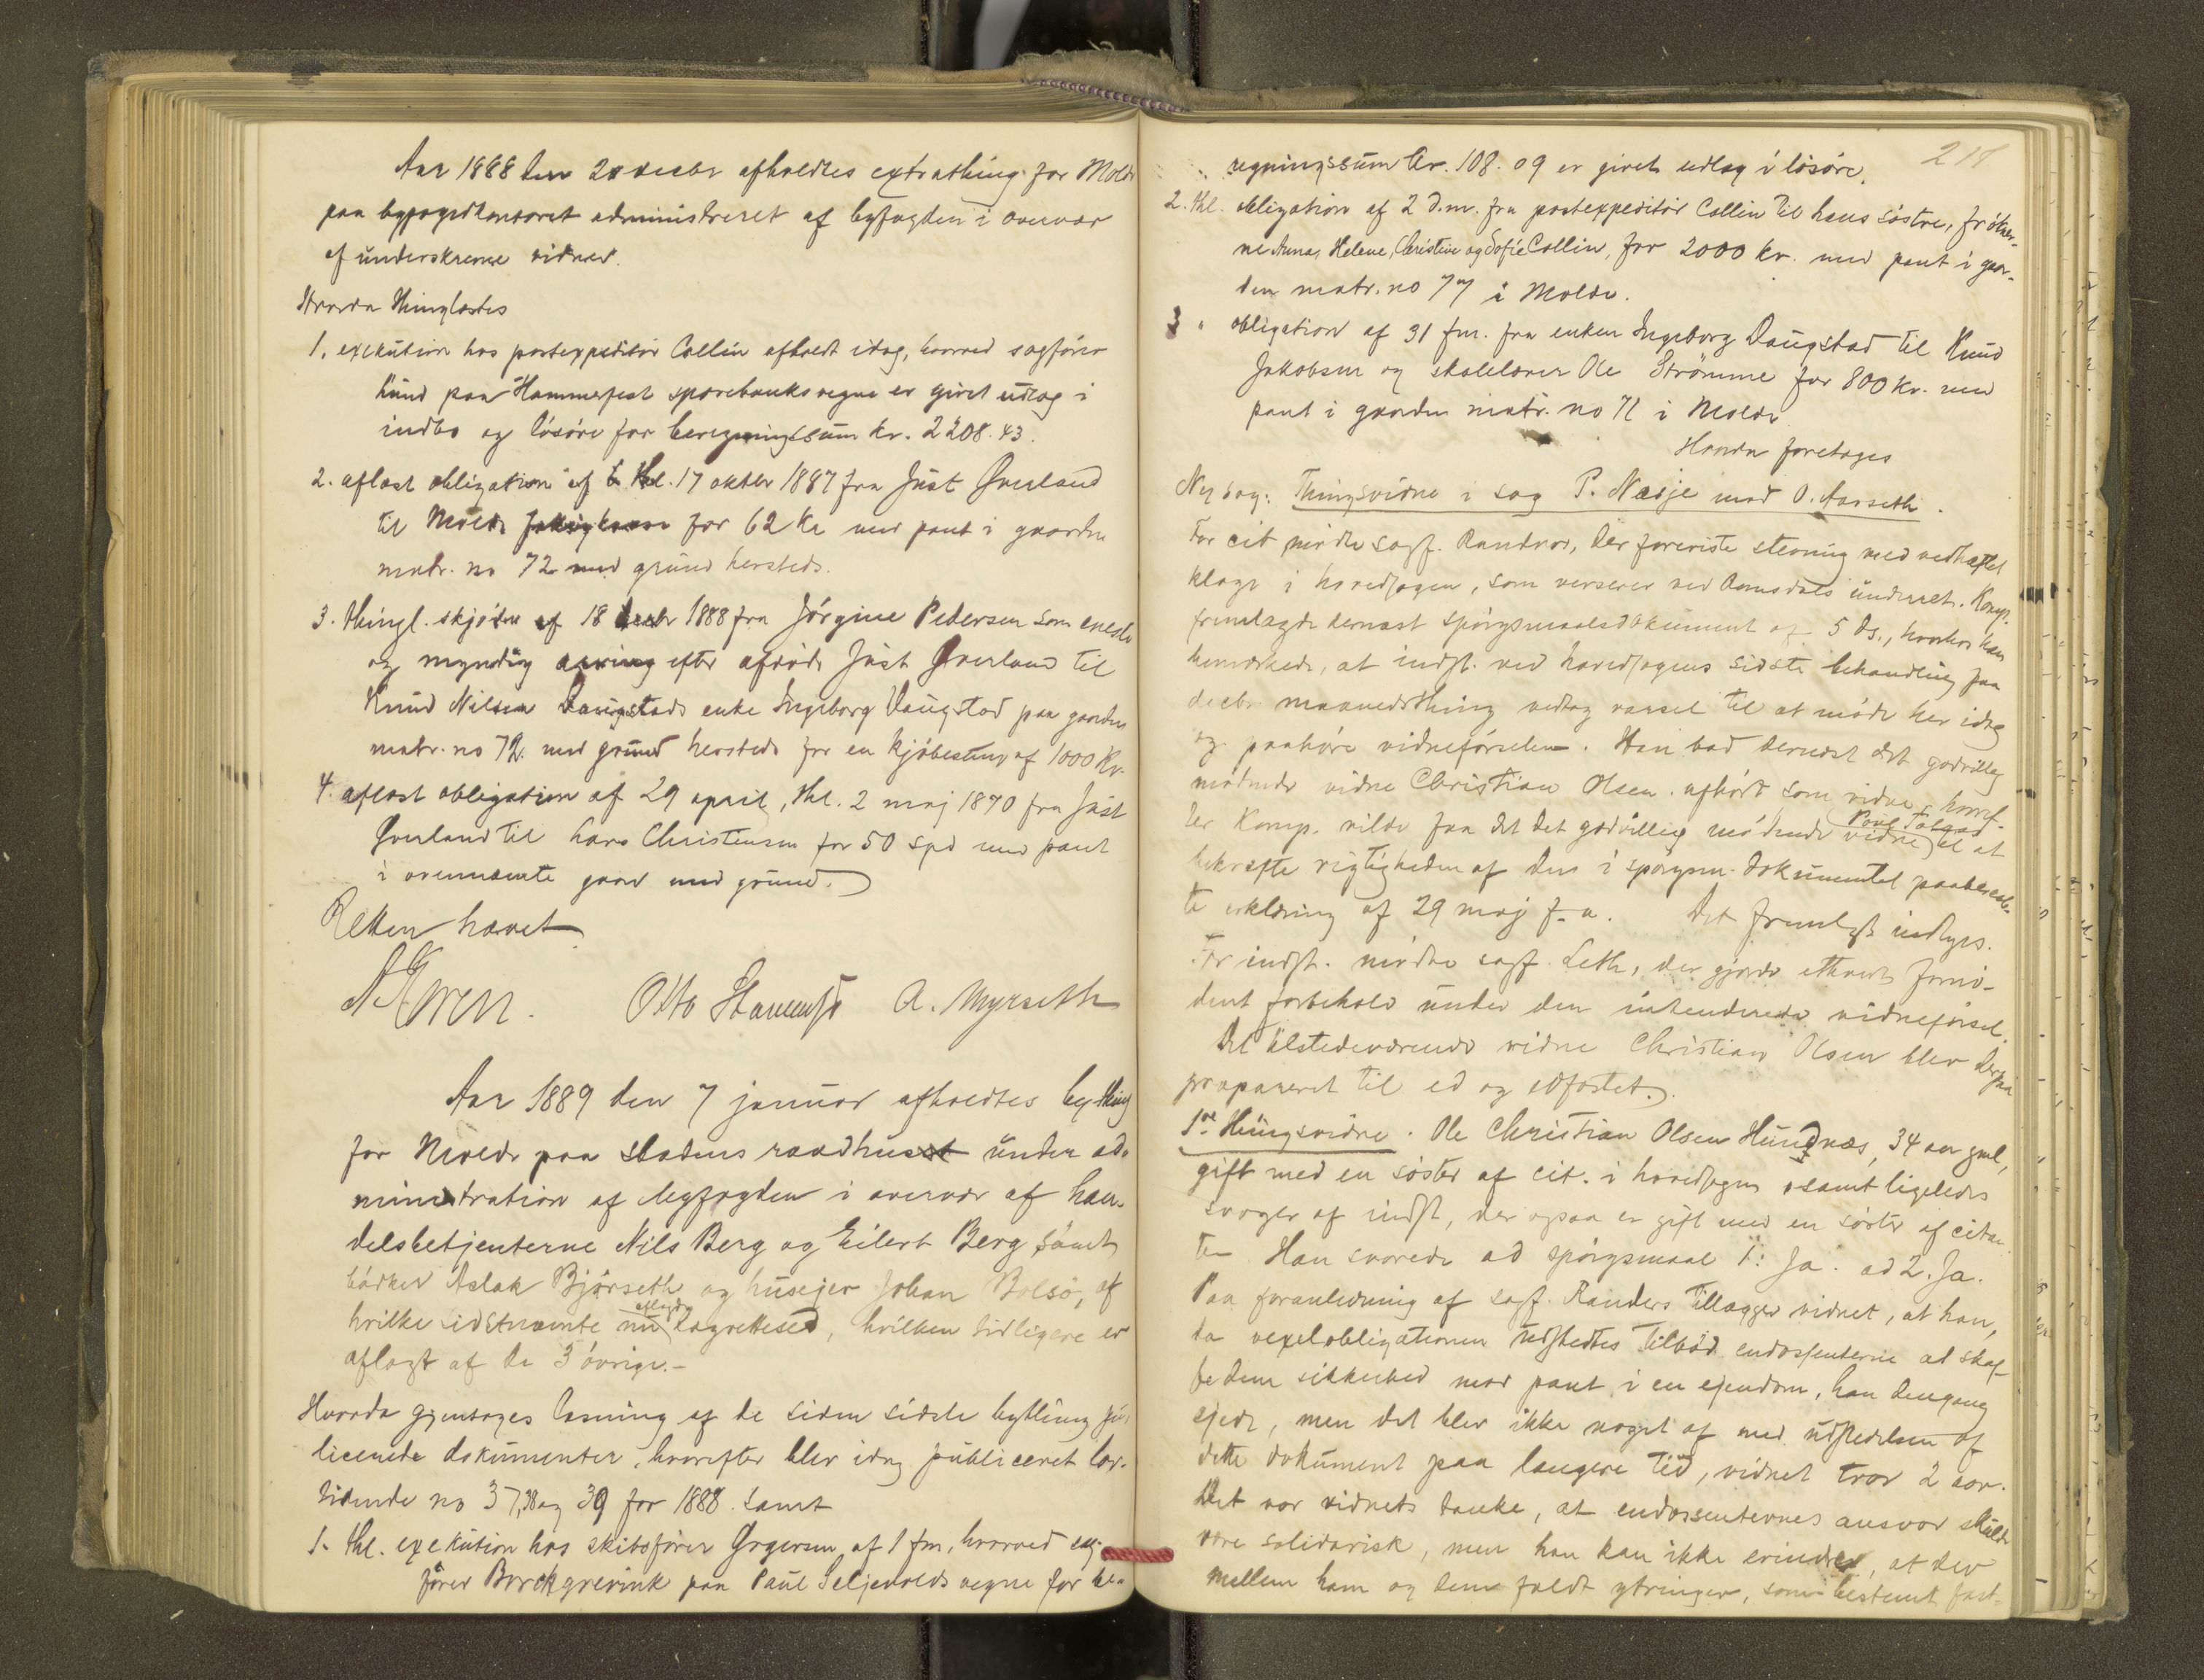 Aar 1888 den 28 decbr afholdtes extrathing for Molde
paa byfogedkontoret administreret af byfogden i overvær
af underskrevne vidner.
Hvorda thinglæstes
1. exekution hos postexpeditør Collin afholdt idag, hvorved sagfører
Lund paa Hammerfest sparebanks vegne er givet udlæg i
indbo og løsøre for beregningssum kr. 2208.43.
2. aflæst obligation af thl. 17 oktbr 1887 fra Just Øverland
til Molde for 62 kr med pant i gaarden
matr. no 72 med grund hersteds.
3. thingl. skjøde af 18 decbr 1888 fra Jørgine Pedersen som eneste
og myndig arving efter afdøde Just Øverland til
Knud Nilsen Daugstads enke Ingeborg Daugstad paa gaarden
matr. no 72 med grund hersteds for en kjøbesum af 1000 Kr.
4. aflæst obligation af 29 april, thl. 2 maj 1870 fra Just
Øverland til Lars Christensen for 50 spd med pant
i ovennævnte gaard med grund.
Retten hævet
Otto A. Myrseth
Aar 1889 den 7 januar afholdtes bything
for Molde paa stadens raadhus under ad-
ministration af byfogden i overvær af han-
delsbetjenterne Nils Berg og Eilert Berg samt
bødker Aslak Bjørseth og husejer Johan Bolsø, af
hvilke sidstnævnte nu aflagde lagrettesed, hvilken tidligere er
aflagt af de 3 øvrige.-
Hvorda gjentoges læsning af de siden sidste bything pu-
licerede dokumenter, hvorefter blev idag publiceret lov-
tidende no 37, 38 og 39 for 1888 samt
1. thl. exekution hos skibsfører Gregersen af 1 fm, hvorved sag-
fører Borchgrevink paa Paul Seljevolds vegne for be-
218
regningssum kr. 108.09 er givet udlæg i løsøre.
2. thl. obligation af 2 d.m. fra postexpeditør Collin til hans søstre, frøkner-
ne Anna, Helene, Christine og Sofie Collin, for 2000 kr. med pant i gaar-
den matr. no 77 i Molde.
3 " obligation af 31 fm. fra enken Ingeborg Daugstad til Knud
Jakobsen og skolelærer Ole Strømme for 800 kr. med
pant i gaarden matr. no 72 i Molde
Hvorda foretoges
Ny sag: Thingsvidne i sag P. Næsje mod O. Aarseth.
For cit mødte sagf. Randers, der foreviste stevning med vedhæftet
klage i hovedsagen, som verserer ved Romsdals underret. Komp.
fremlagde dernæst spørgsmaalsdokument af 5 ds., hvorhos han
bemærkede, at indst. ved hovedsagens sidste behandling paa
decbr. maanedsthing vedtog varsel til at møde her idag
og paahøre vidneførselen. Han bad dernæst det godvillig
mødende vidne Christian Olsen afhørt som vidne, hvoref-
ter Komp. vilde faa det det godvillig mødende vidne til at
bekræfte rigtigheden af den i spørgsm. dokumentet paaberaab-
te erklæring af 29 maj f. a. Det fremlagte indtages.
For indst. mødte sagf. Leth, der gjorde ethvert fornø-
dent forbehold under den intenderede vidneførsel.
Det tilstedeværende vidne Christian Olsen blev derpaa
præpareret til ed og edfæstet.
1ste Thingsvidne. Ole Christian Olsen Hundnæs, 34 aar gml,
gift med en søster af cit. i hovedsagen samt ligeledes
svoger af indst, der ogsaa er gift med en søster af citan-
ten Han svarede ad spørgsmaal 1: Ja. ad 2. Ja.
Paa foranledning af sagf. Randers tillægger vidnet, at han,
da vexelobligationen udstedtes tilbød endossenterne at skaf-
fe dem sikkerhed mod pant i en ejendom, han dengang
ejede, men det blev ikke noget af med udstedelsen af
dette dokument paa længere tid, vidnet tror 2 aar.
Det var vidnets tanke, at endossenternes ansvar skulde
være solidarisk, men han kan ikke erindre, at der
mellem ham og dem faldt ytringer, som bestemt fast-